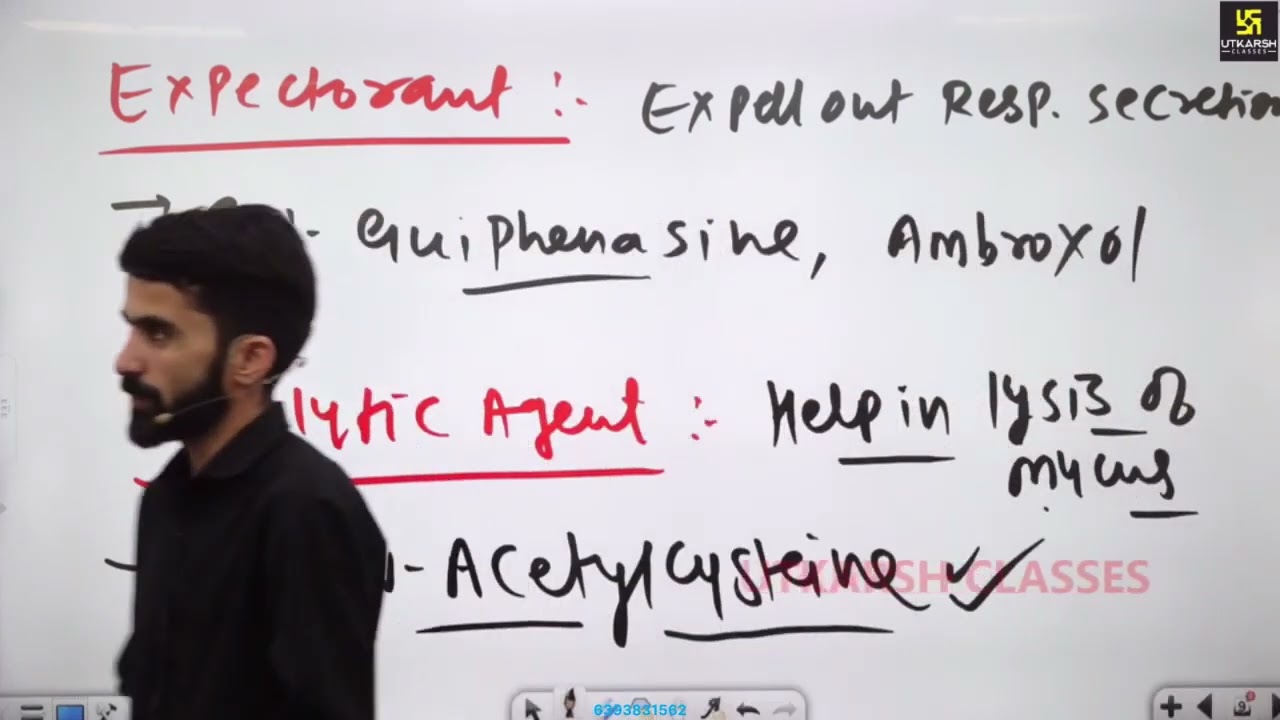 UTKARSH
CLASSES
Expectorant :- Expell out Resp. secretion
→ - Guiphenasine, Ambroxol
lytic Agent :- Help in lysis of
mycus
- Acetylcysteine ✓
UTKARSH CLASSES
6393831562
9